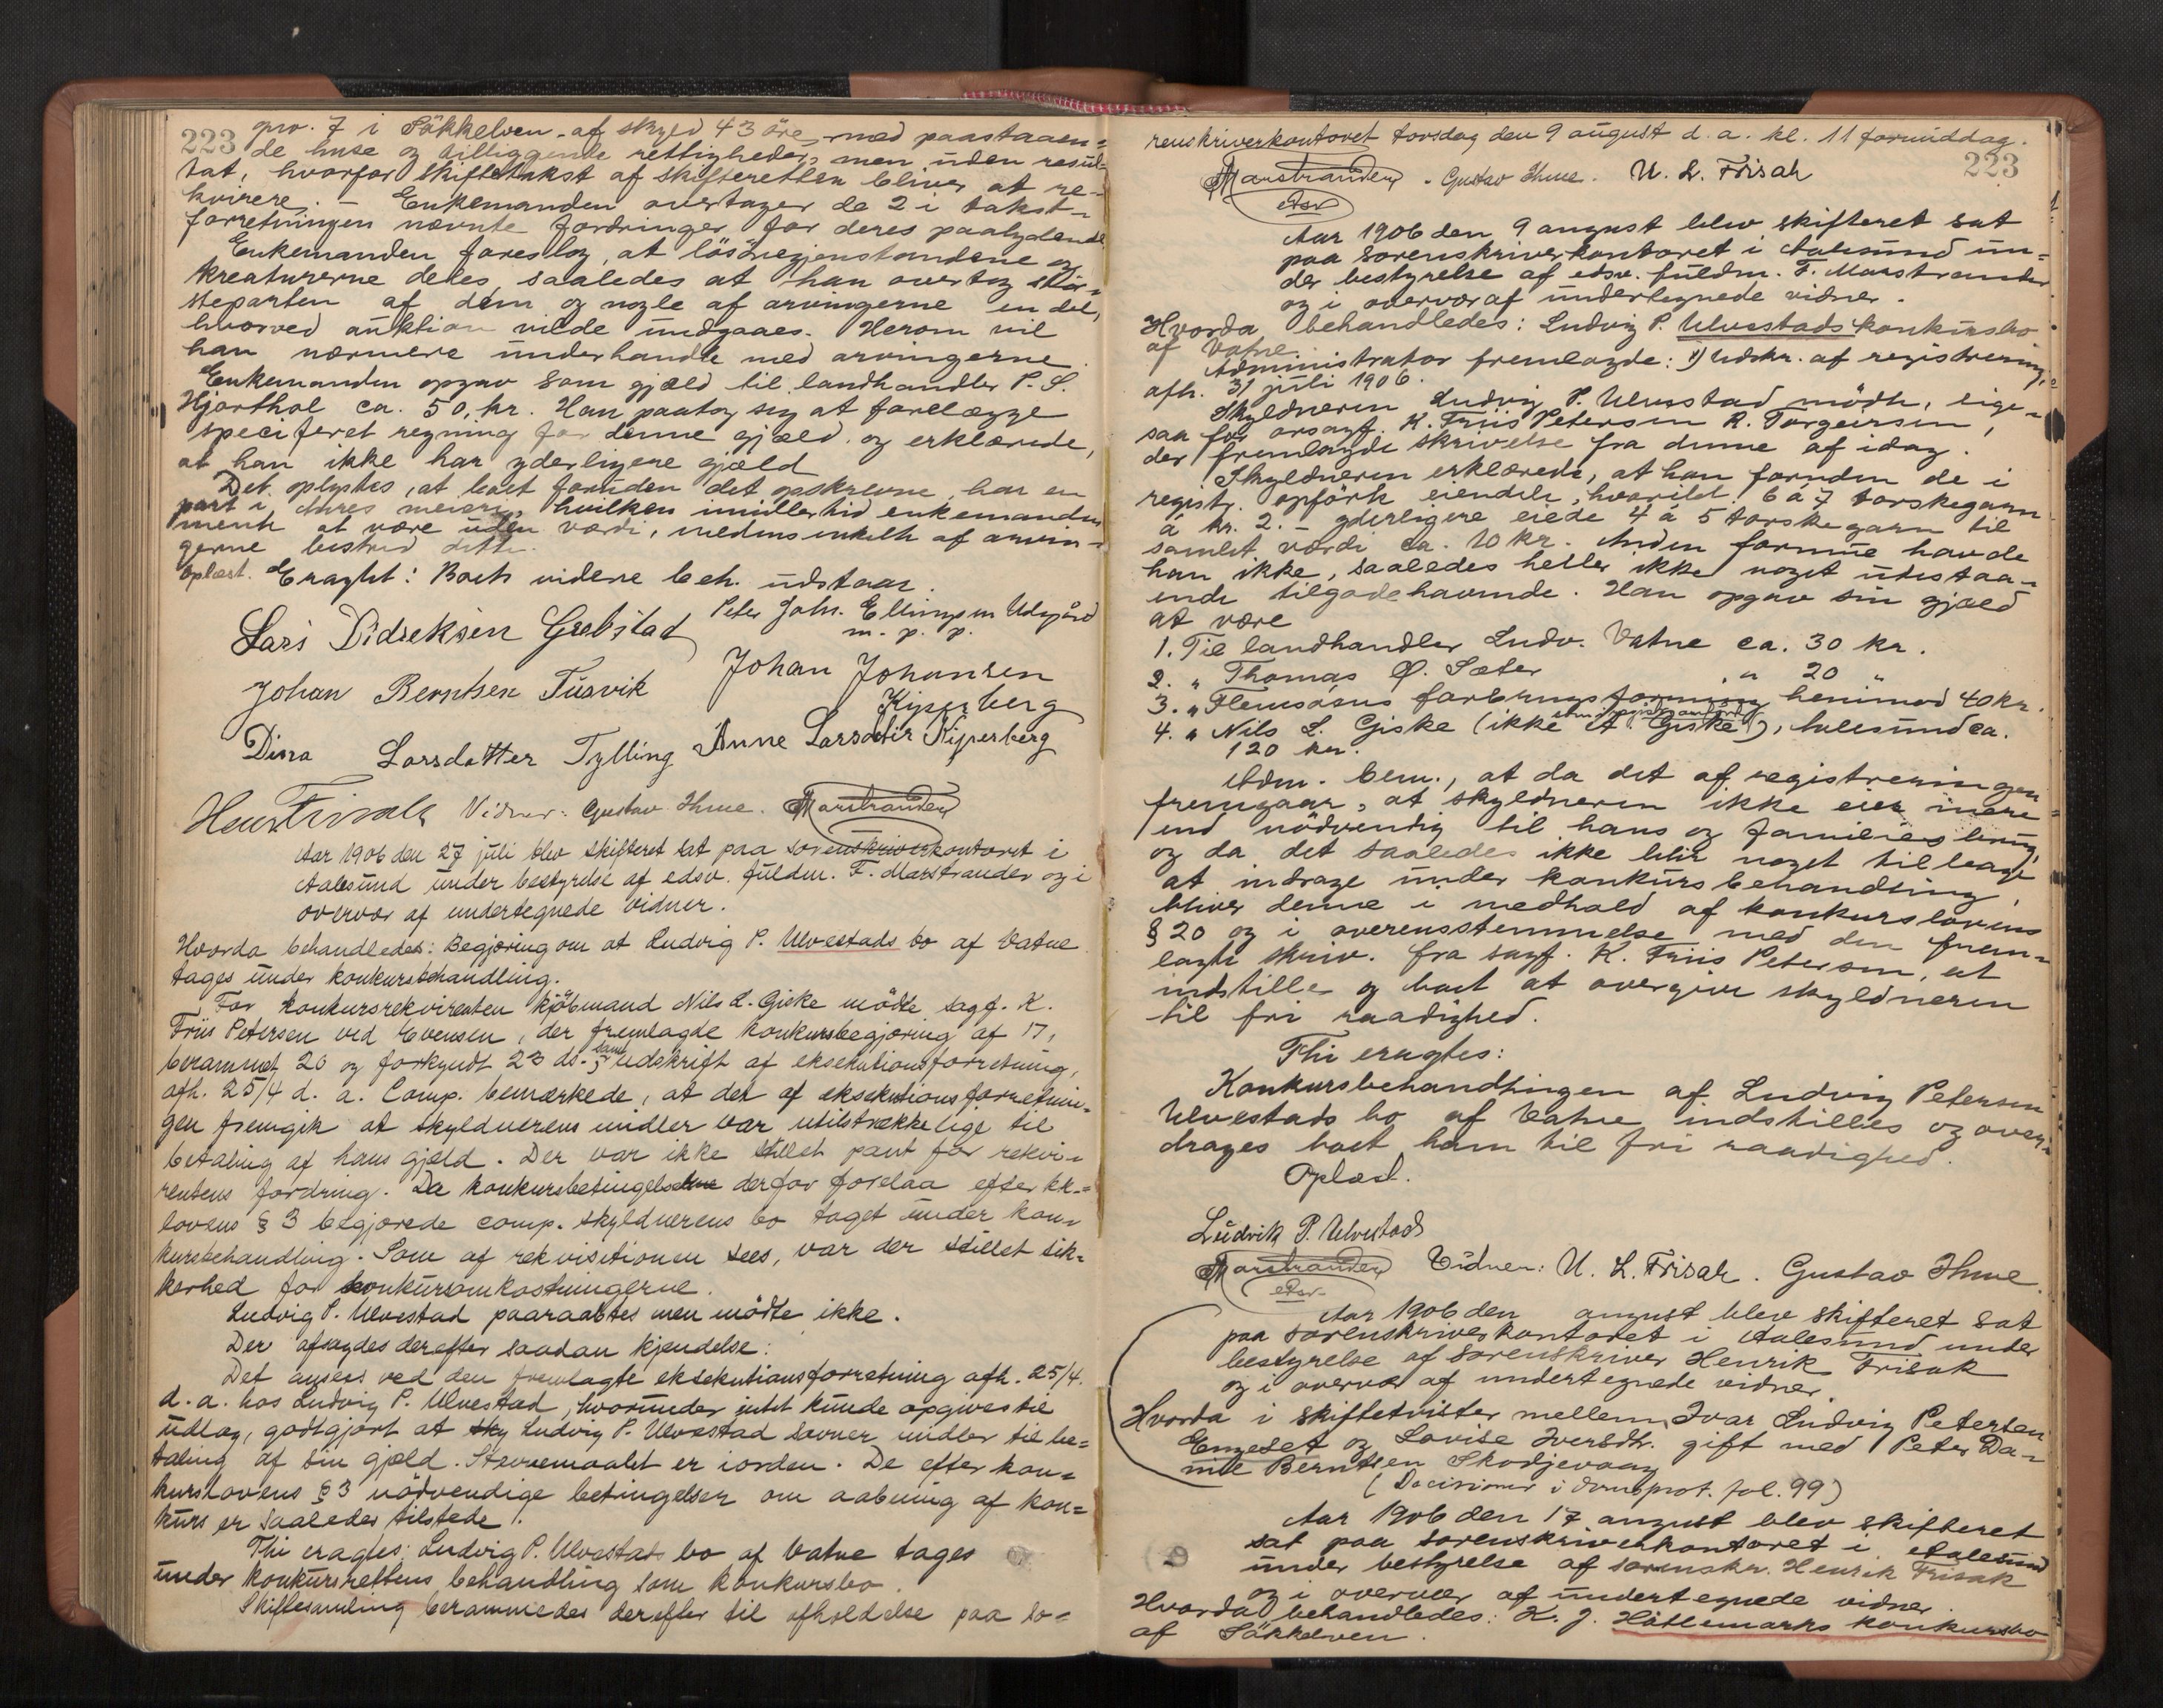 223
gnr. 7 i Søkkelven af skyld 43 øre, med paastaaen-
de huse og tilliggende rettigheder, men uden resul-
tat, hvorfor skiftetakst af skifteretten bliver at re-
kvirere. - Enkemanden overtager de 2 i takst-
forretningen nævnte fordringer for deres paalydende.
Enkemanden foreslog, at løsøregjenstandene og
kreaturerne deles saaledes at han overtog stør-
steparten af dem og nogle af arvingerne en del,
hvorved auktion vilde undgaaes. Herom vil
han nærmere underhandle med arvingerne.
Enkemanden opgav som gjæld til landhandler P. S.
Hjorthol ca. 50, kr. Han paatog sig at forelægge
specificeret regning for denne gjæld og erklærede,
at han ikke har yderligere gjæld
Det oplystes, at boet foruden det opskrevne, har en
part i meieri, hvilken imidlertid enkemanden
mente at være uden værdi, medens enkelte af arvin-
gerne bestred dette.
Oplæst. Eragtet: Boets videre beh. udstaar.
Lars Didreksen Grebstad Peter Joh. Ellingsen Udgård
m. p. p.
Johan Berntsen Tusvik Johan Johansen
Kjerberg
Dina Larsdatter Tylling Anne Larsdatter Kjerberg
Henr Frisak Vidner: Gustav Ihme. Marstrander
Aar 1906 den 27 juli blev skifteret sat paa sorenskriverkontoret i
Aalesund under bestyrelse af edsv. fuldm. F. Marstrander og i
overvær af undertegnede vidner.
Hvorda behandledes: Begjæring om at Ludvig P. Ulvestads bo af Vatne
tages under konkursbehandling.
For konkursrekvirenten kjøbmand Nils L. Giske mødte sagf. K.
Friis Petersen ved Evensen, der fremlagde konkursbegjæring af 17,
berammet 20 og forkyndt 23 ds. samt udskrift af eksekutionsforretning,
afh. 25/4 d. a. Comp. bemærkede, at det af eksekutionsforretnin-
gen fremgik at skyldnerens midler var utilstrækkelige til
betaling af hans gjæld. Der var ikke stillet pant for rekvi-
rentens fordring. Da konkursbetingelserne derfor forelaa efter kk.-
lovens § 3 begjærede comp. skyldnerens bo taget under kon-
kursbehandling. Som af rekvisitionen sees, var der stillet sik-
kerhed for konkursomkostningerne.
Ludvig P. Ulvestad paaraabtes men mødte ikke.
Der afsagdes derefter saadan kjendelse:
Det ansees ved den fremlagte eksekutionsforretning afh. 25/4
d. a. hos Ludvig P. Ulvestad, hvorunder intet kunde opgives til
udlæg, godtgjort at sky Ludvig P. Ulvestad savner midler til be-
taling af sin gjæld. Stevnemaalet er iorden. De efter kon-
kurslovens § 3 nødvendige betingelser om aabning af kon-
kurs er saaledes tilstede.
Thi eragtes: Ludvig P. Ulvestads bo af Vatne tages
under konkursrettens behandling som konkursbo.
Skiftesamling berammedes derefter til afholdelse paa so-
renskriverkontoret torsdag den 9 august d. a. kl. 11 formiddag.
223
Marstrander . Gustav Ihme . U. L. Frisak
edsv
Aar 1906 den 9 august blev skifteret sat
paa sorenskriverkontoret i Aalesund un-
der bestyrelse af edsv. fuldm. F. Marstrander
og i overvær af undertegnede vidner.
Hvorda behandledes: Ludvig P. Ulvestads konkursbo
af Vatne.
Administrator fremlagde: 1) Udskr. af registrering,
afh. 31 juli 1906.
Skyldneren Ludvig P. Ulvestad mødte, lige-
saa for orsagf. K. Friis Petersen R. Torgeirsen,
der fremlagde skrivelse fra denne af idag.
Skyldneren erklærede, at han foruden de i
registr. opførte eiendele, hvoriblt. 6 à 7 torskegarn
á kr. 2. - yderligere eiede 4 à 5 torskegarn til
samlet værdi ca. 10 kr. Anden formue havde
han ikke, saaledes heller ikke noget udestaa-
ende tilgodehavende. Han opgav sin gjæld
at være
1. Til landhandler Ludv. Vatne ca. 30 kr.
2. " Thomas O. Sæter " 20 "
3. " Flemsøens farbrugsforening henimod 40 kr.
4. " Nils L. Giske (ikke A. Giske), Aalesund ca.
120 kr.
Adm. bem., at da det af registreringen
fremgaar, at skyldneren ikke eier mere
end nødvendig til hans og families brug,
og da det saaledes ikke blir noget tilbage
at inddrage under konkursbehandling,
bliver denne i medhold af konkurslovens
§ 20 og i overensstemmelse med den frem-
lagte skriv. fra sagf. K. Friis Petersen, at
indstille og boet at overgive skyldneren
til fri raadighed.
Thi eragtes:
Konkursbehandlingen af Ludvig Petersen
Ulvestads bo af Vatne indstilles og over-
drages boet ham til fri raadighed.
Oplæst.
Ludvik P. Ulvestad
Marstrander Vidner: U. L. Frisak. Gustav Ihme.
edsv.
Aar 1906 den august blev skifteret sat
paa sorenskriverkontoret i Aalesund under
bestyrelse af sorenskriver Henrik Frisak
og i overvær af undertegnede vidner.
Hvorda i skiftetvister mellem Ivar Ludvig Petersen
Engeset og Lovise Iversdtr. gift med Peter Da-
niel Berntsen Skodjevaag
(Decisioner i domsprot. fol. 99)
Aar 1906 den 17 august blev skifteret
sat paa sorenskriverkontoret i Aalesund
under bestyrelse af sorenskr. Henrik Frisak
og i overvær af undertegnede vidner.
Hvorda behandledes: K. J. Hatlemarks konkursbo
af Søkkelven.